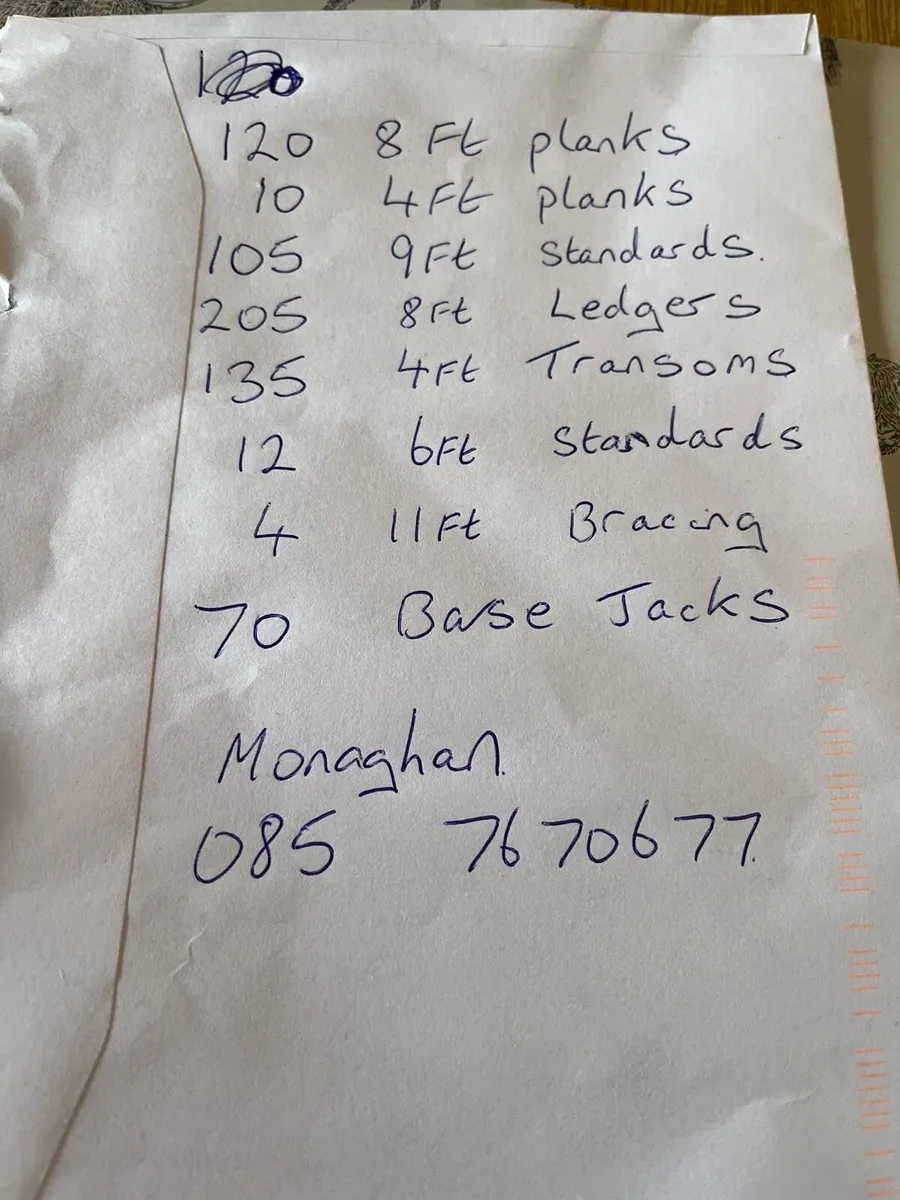 120 8 Ft planks
10 4Ft planks
105 9Ft standards.
205 8Ft Ledgers
135 4Ft Transoms
12 6Ft standards
4 11Ft Bracing
70 Base Jacks
Monaghan
085 7670677